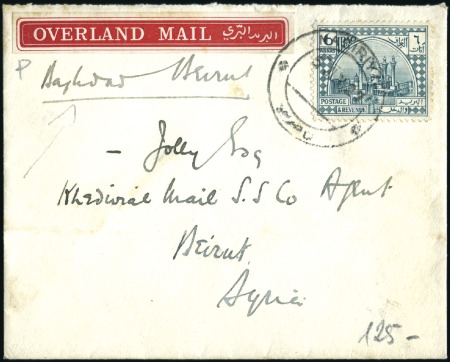 OVERLAND MAIL البريد البري
Baghdad Beirut
POSTAGE
& REVENUE
— Jolly Esq
Khedivial Mail S. S Co Agent
Beirut
Syria
125-